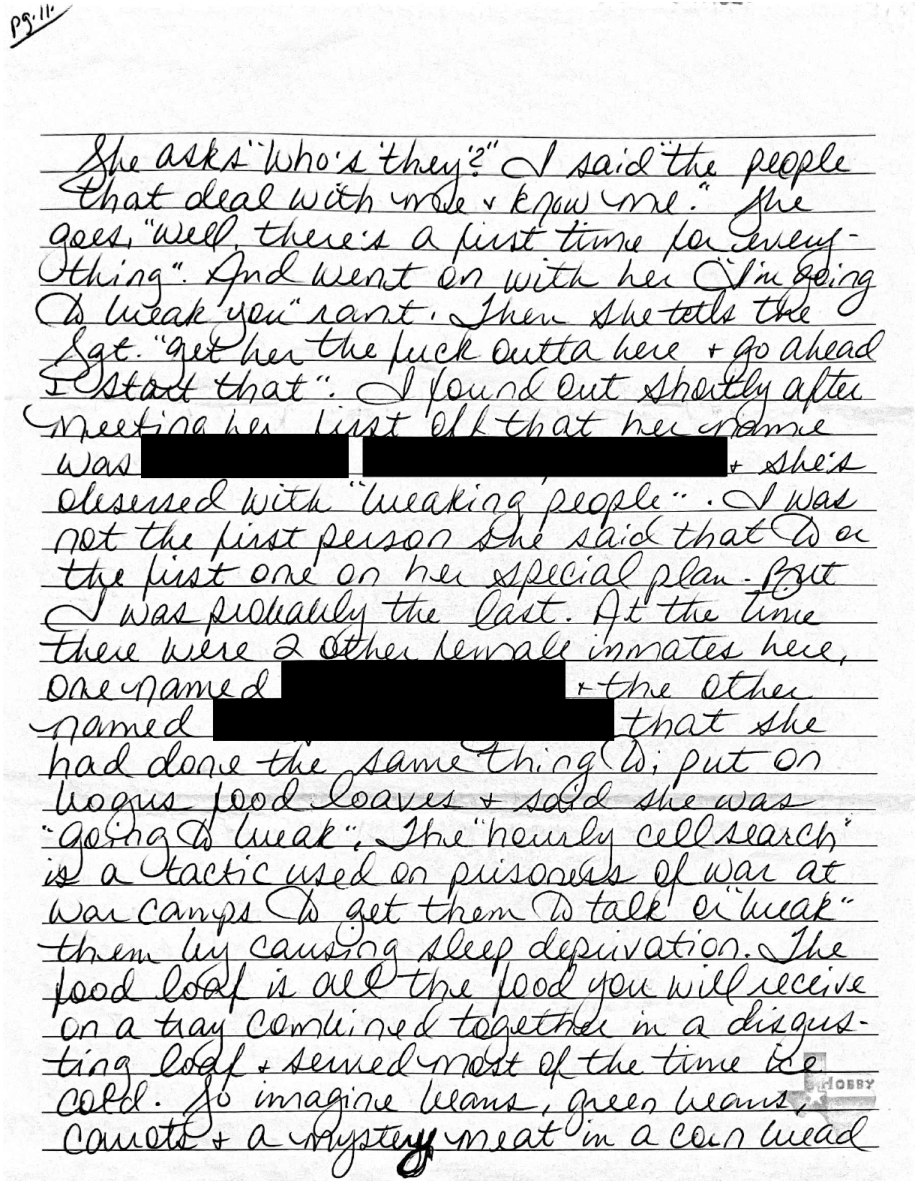 pg. 11.
She asks "who's 'they'?" I said "the people
that deal with me & know me." She
goes, "well, there's a first time for every-
thing". And went on with her "I'm going
to break you" rant. Then she tells the
Sgt. "get her the fuck outta here & go ahead
& start that". I found out shortly after
meeting her first off that her name
was & she's
obsessed with "breaking people". I was
not the first person she said that to or
the first one on her special plan. But
I was probably the last. At the time
there were 2 other female inmates here,
one named & the other
named that she
had done the same thing to; put on
bogus food loaves & said she was
"going to break". The "hourly cell search"
is a tactic used on prisoners of war at
war camps to get them to talk or "break"
them by causing sleep deprivation. The
food loaf is all the food you will receive
on a tray combined together in a disgus-
ting loaf & served most of the time ice
cold. So imagine beans, green beans,
carrots & a mystery meat in a corn bread
HOBBY